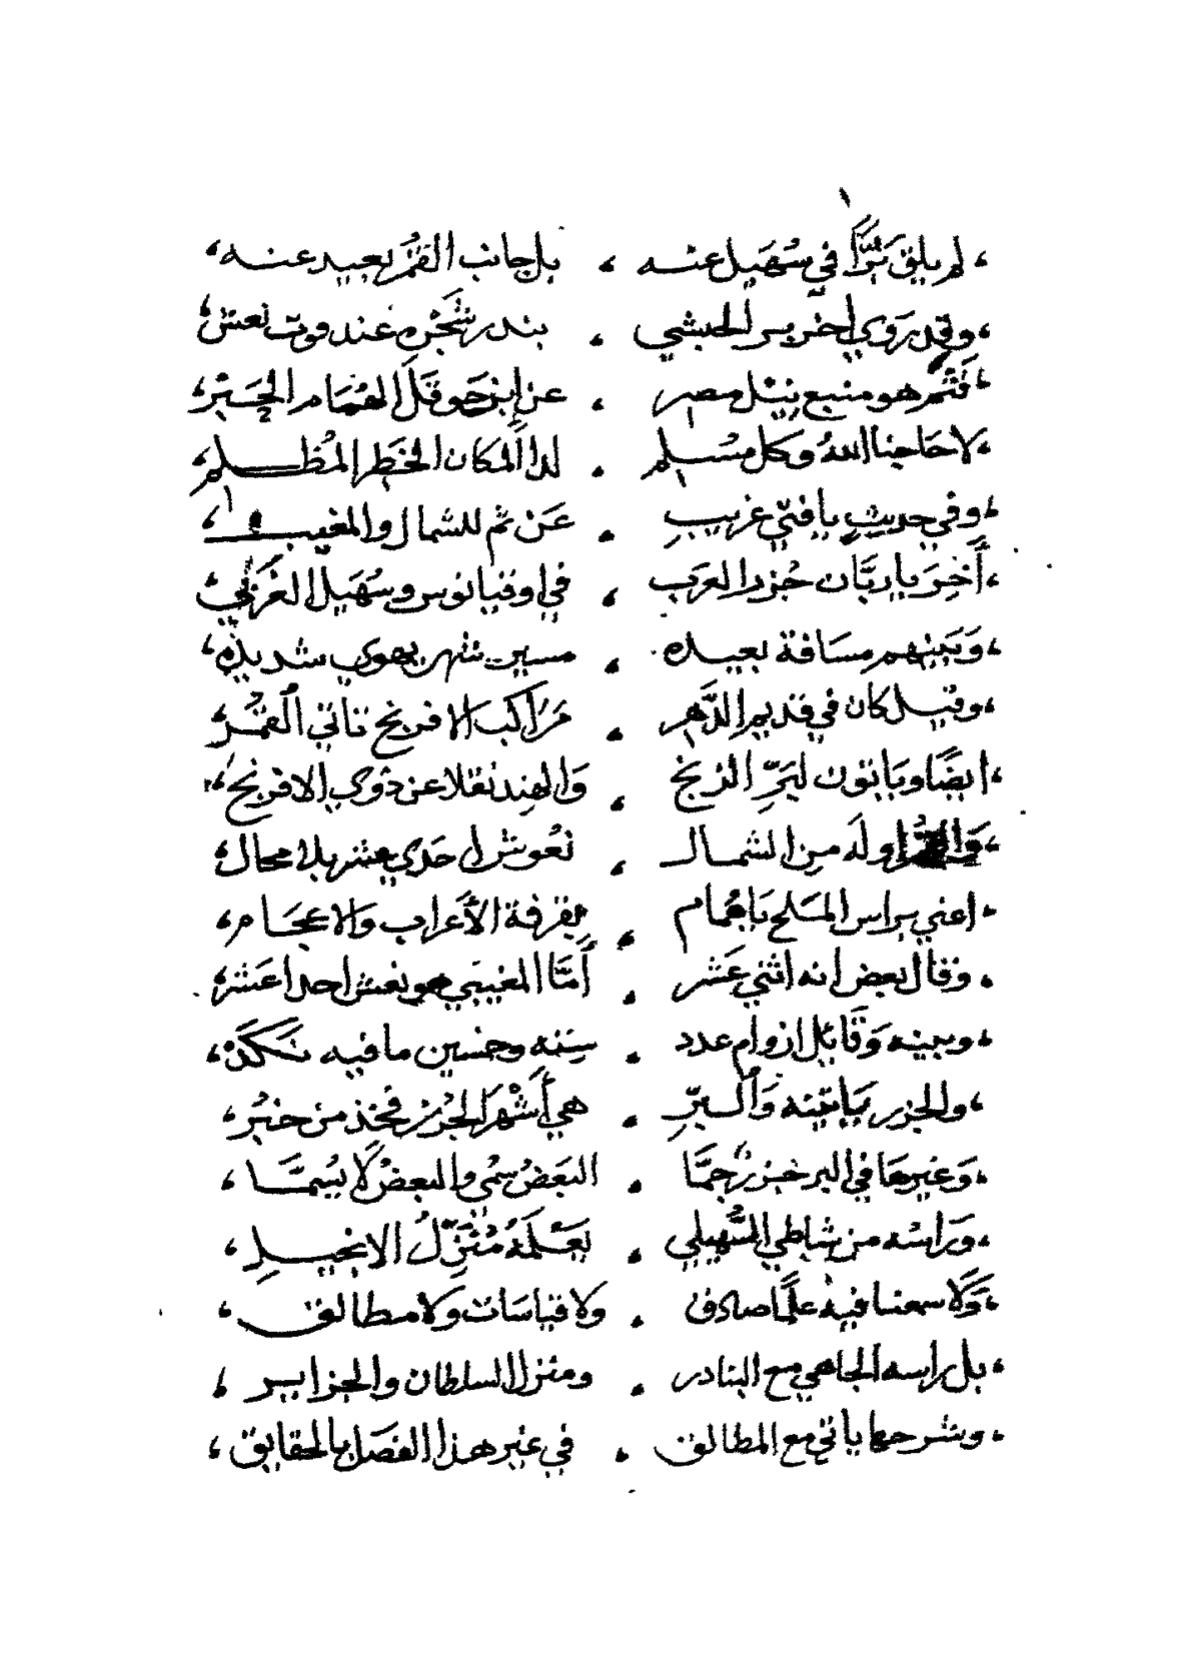 لم يلق بَرًّا في سُهَيل عنه ، بل جانب القُمْر بعيد عنه
وقد روي اخر بر الحبشي ، بندر شَجْرِه عند فوت نعش
فَثم هو منبع نيل مصر ، عن ابن حَوقَل الهُمَام الحَبْر
لا حاجنا اللهُ وكل مُسْلم ، لذا المكان الخَطِر المُظلم
وفي حديثٍ يا فتي غريبِ ، عَن ثم للشمال والمغيب
أَخِرَ يا ربَّان جُزر العرب ، في اوقيانوس وسُهَيل الغَرْبي
وَبَينهم مسَافة بعيده ، مسير شهر بهوي شديده
وقيل كان في قديم الدَّهر ، مَرَاكب الافرنج تاتي القُمْر
ايضًا وياتون لبَرِّ الزنج ، وَالهِند نقلا عن ذوي الافرنج
وَالقُمْر اوله من الشمال ، نعُوش احدي عشر بلا محال
اعني براس المَلح يَا هُمام ، بفرقة الأعراب وَالاعجَام
وقال بعض انه اثني عَشر ، أمَّا المغيبي هو نعش احدا عَشر
وبينه وَقَايل ازوام عدد ، سِتَه وخمسين ما فيه نَكَدْ
والجزر ياتينه وَالبرِّ ، هي أَشْهَر الجُزْر فخذ من خبْر
وَغيرهَا في البر خبز جَمَّا ، البَعَضُ سُمي والبعضُ لَا يُسَمَّا
وَرَاسُه من شاطي السُّهيلي ، يَعْلَمَهُ مُنَزِّلُ الانجيلِ
وَلَا سمعنا فيه علمًا صادق ، ولا قياسَات ولا مطالق
بل راسه الجاهي مع البنادر ، ومنزل السلطان والجزاير
وشرحها ياتي مع المطالق ، في غير هذا الفَصَل بالحقايق